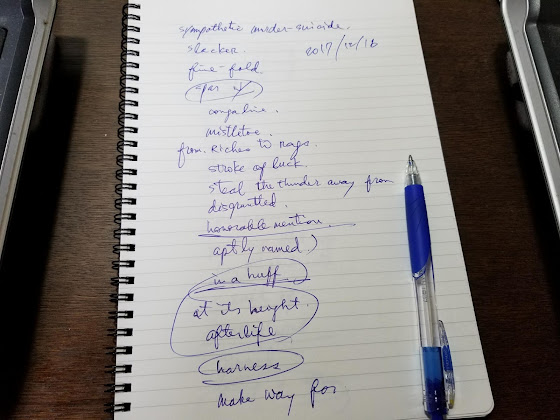 sympathetic murder-suicide.
slacker. 2017/12/16
five-fold
spar w/
conga line.
mistletoe.
from. Riches to rags.
stroke of luck.
steal the thunder away from
disgruntled.
honorable mention
aptly named)
in a huff
at its height
afterlife
harness
make way for